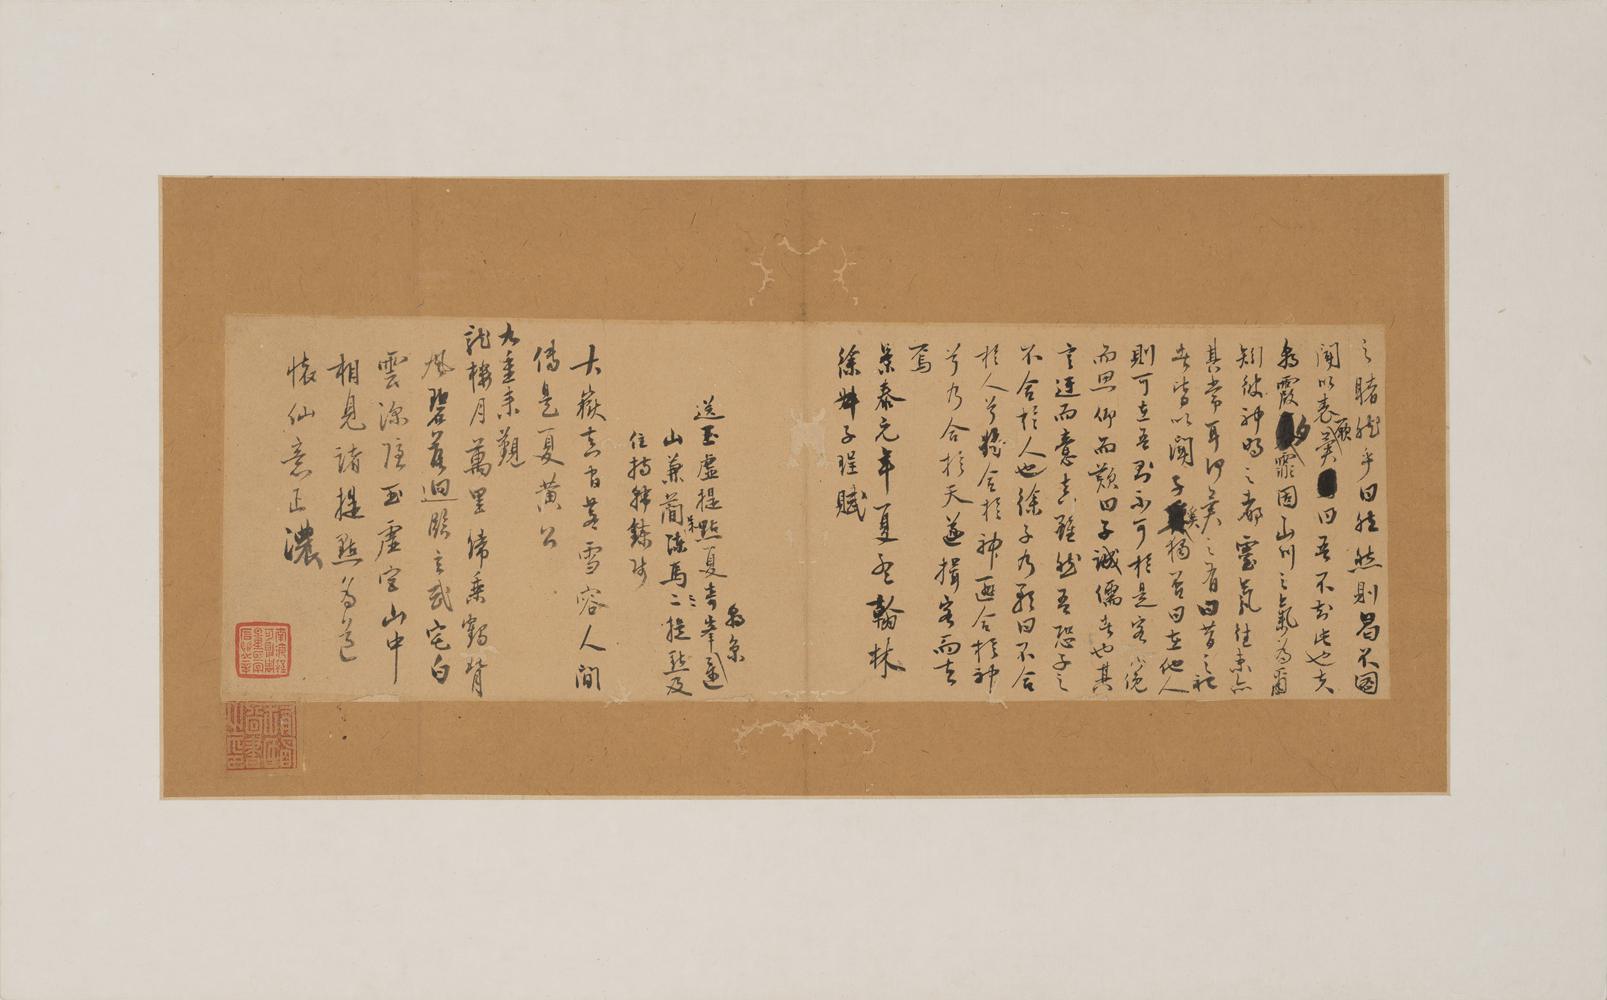 之睹然乎曰然然則曷不圖
聞以表厥美曰吾不知此也夫
翁霞霏固山川之氣為爾
矧彼神明之都靈氣往来亦
其常耳何美之有曰昔之記
者皆以聞子奚獨否曰在他人
則可在吾則不可於是客俛
而思仰而歎曰子誠儒者也其
言迂而意真雖然吾恐子之
不合於人也徐子乃歌曰不合
於人兮疑合於神匪合於神
兮乃合於天遂揖客而去
焉
景泰元年夏五翰林
徐子珵賦
送玉虛提點夏青峯還
山兼簡陳馬二提點及
住持
大嶽真官若雪容人間
傳是夏黃公
九重来覲
龍樓月萬里歸乘鶴背
風碧落迴臨玄武宅白
雲深護玉虛宮山中
相見諸提點為道
懷仙意正濃